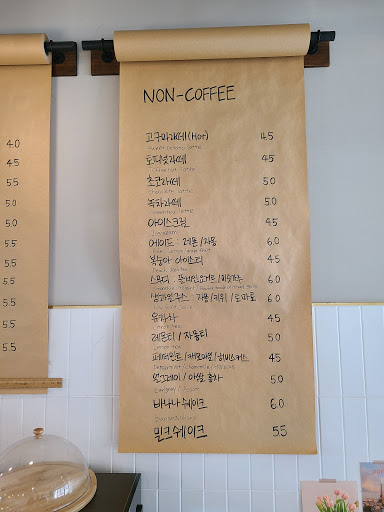 4.0
4.5
5.5
5.0
5.0
5.0
5.0
5.0
5.5
5.5
5.5
NON-COFFEE
고구마라떼 (Hot) 4.5
Sweet potato latte
토피넛라떼 4.5
Toffeenut latte
초코라떼 5.0
Chocolate latte
녹차라떼 5.0
Greentea latte
아이스크림 4.5
Ice cream
에이드 : 레몬/자몽 6.0
복숭아 아이스티 4.5
Peach Ice tea
스무디 : 플레인요거트/ 6.0
생과일쥬스 : 자몽/키위/토마토 6.0
유자차 4.5
레몬티/자몽티 5.0
페퍼민트/캐모마일/히비스커스 4.5
얼그레이/아쌈 홍차 5.0
바나나쉐이크 6.0
밀크쉐이크 5.5